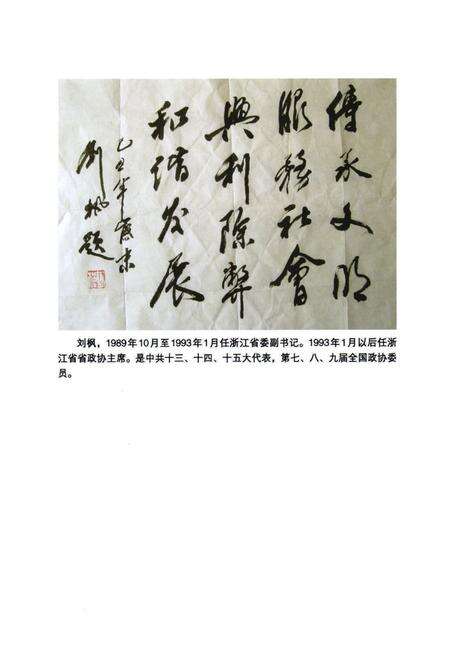 傳承文明
服務社會
興利除弊
和谐发展
乙丑年歲末
刘枫题
刘枫，1989年10月至1993年1月任浙江省委副书记。1993年1月以后任浙
江省省政协主席。是中共十三、十四、十五大代表，第七、八、九届全国政协委
员。